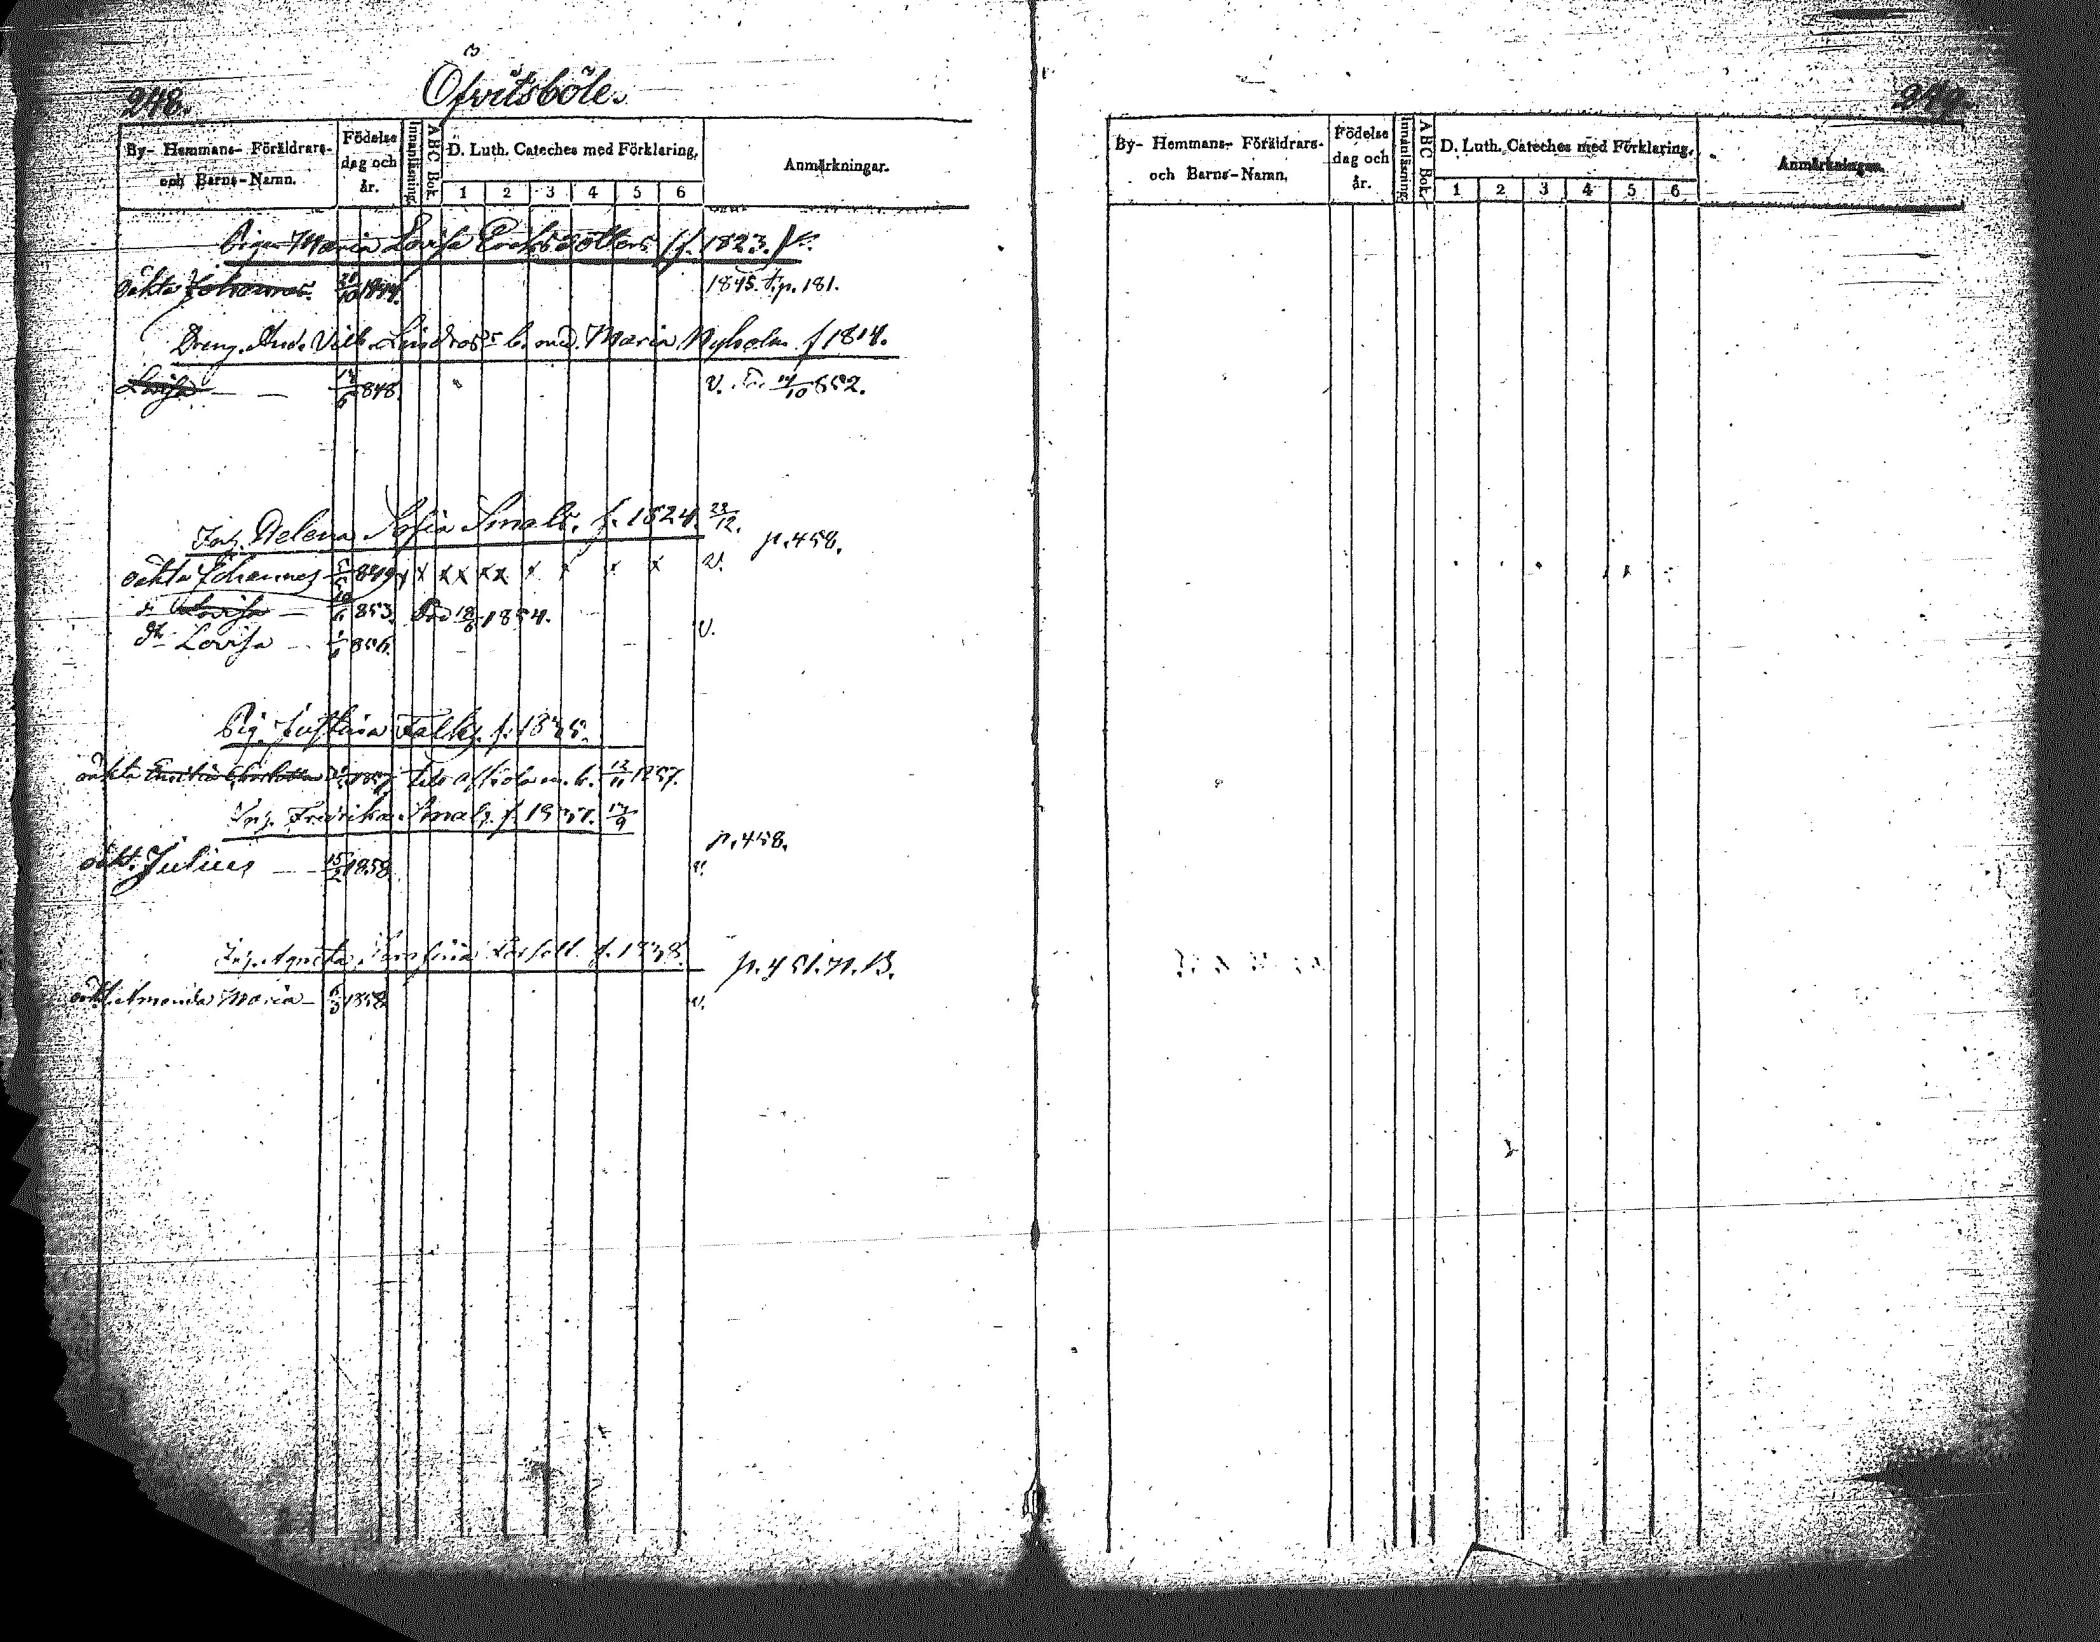 248.
Öfvitsböle.
By- Hemmans- Föräldrars- och Barns-Namn.
Födelse dag och år.
Innanläsning.
ABC Bok.
D. Luth. Cateches med Förklaring.
1 2 3 4 5 6
Anmärkningar.
Pigan Maria Lovisa Eriksdotters f. 1823.
oäkta Johannes. 1844. 1845. p. 181.
Dreng. And. Vilh. Lindros b. med. Maria Nyholm f 1814.
Lovisa — — 848 v. 14/10 852.
Inh. Helena Sofia Smals. f. 1824. 23/12. p. 458.
oäkta Johannes 849 x x x x x x x x x x v.
Lovisa — 853 Död 18/6 1854.
Lovisa — 856. v.
Pig. Justina Falks. f. 1835.
oäkta Emilia Charlotta 1857 12/11 1857.
Inh. Fredrika Smals. f. 1937. 14/9
p. 458.
oäkt. Julius — — 15/2 1858 v.
Inh. Agneta f. 1838. p. 451. n. 13.
oäkt. Amanda Maria — 6/3 1858 v.
249.
By- Hemmans- Föräldrars- och Barns-Namn.
Födelse dag och år.
Innanläsning.
ABC Bok.
D. Luth. Cateches med Förklaring.
1 2 3 4 5 6
Anmärkningar.